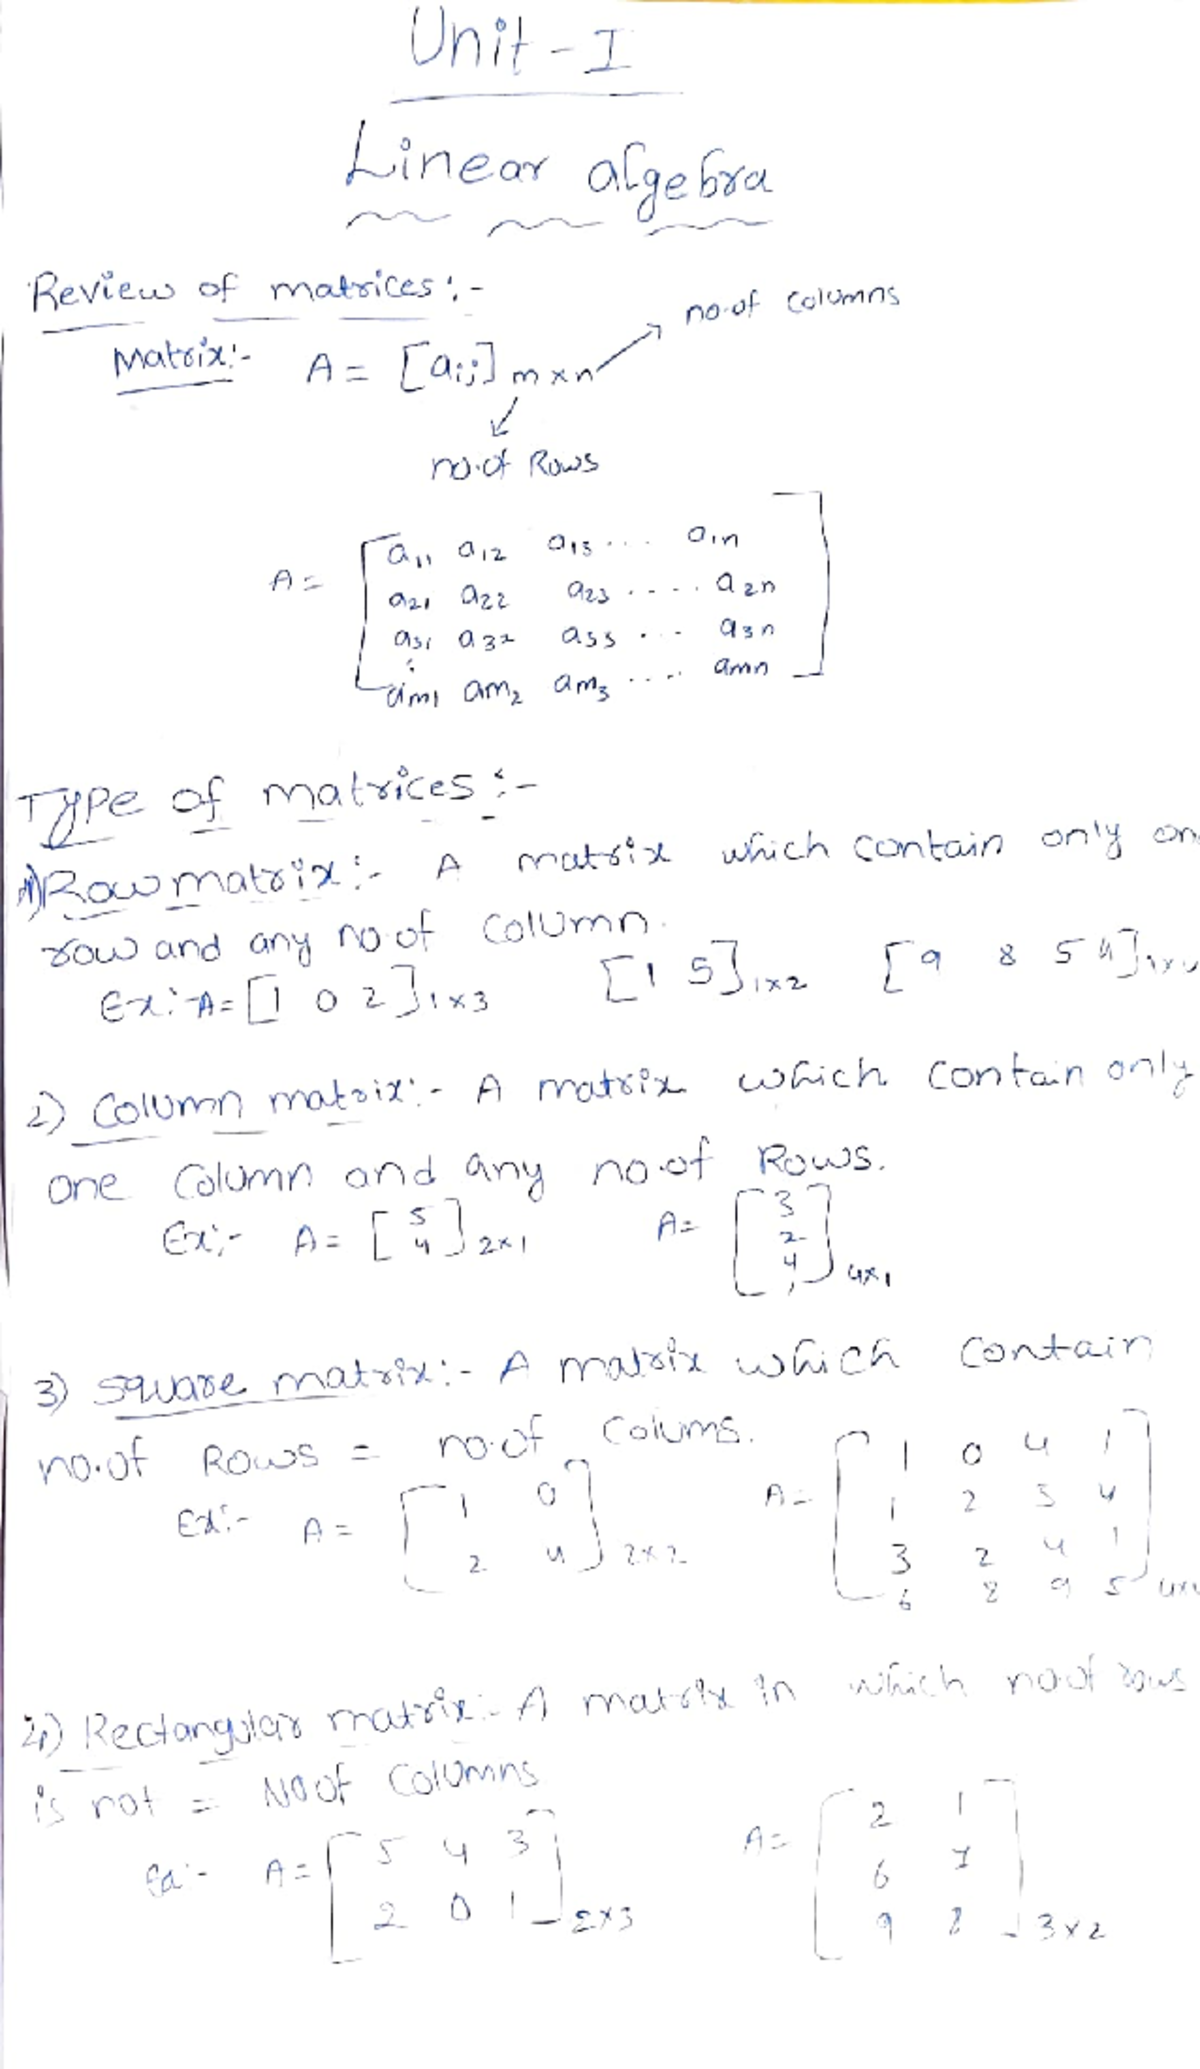 Unit - I
Linear algebra
Review of matrices :-
no.of columns
Matrix:- A = [aij] m×n
no.of Rows
A = [a11 a12 a13 ... a1n
a21 a22 a23 ..... a2n
a31 a32 a33 ... a3n
:
am1 am2 am3 ..... amn]
Type of matrices :-
1) Row matrix :- A matrix which contain only on
row and any no.of column.
Ex:- A = [1 0 2] 1×3 [1 5] 1×2 [9 8 5 4] 1×4
2) Column matrix :- A matrix which contain only
one Column and any no.of Rows.
Ex:- A = [5 4] 2×1 A = [3 2 4 1] 4×1
3) square matrix :- A matrix which contain
no.of Rows = no.of Colums.
Ex:- A = [1 0
2 4] 2×2
A = [1 0 4 1
1 2 3 4
3 2 4 1
6 8 9 5] 4×4
4) Rectangular matrix :- A matrix in which no.of rows
is not = No of Columns
Ex:- A = [5 4 3
2 0 1] 2×3
A = [2 1
6 7
9 8] 3×2